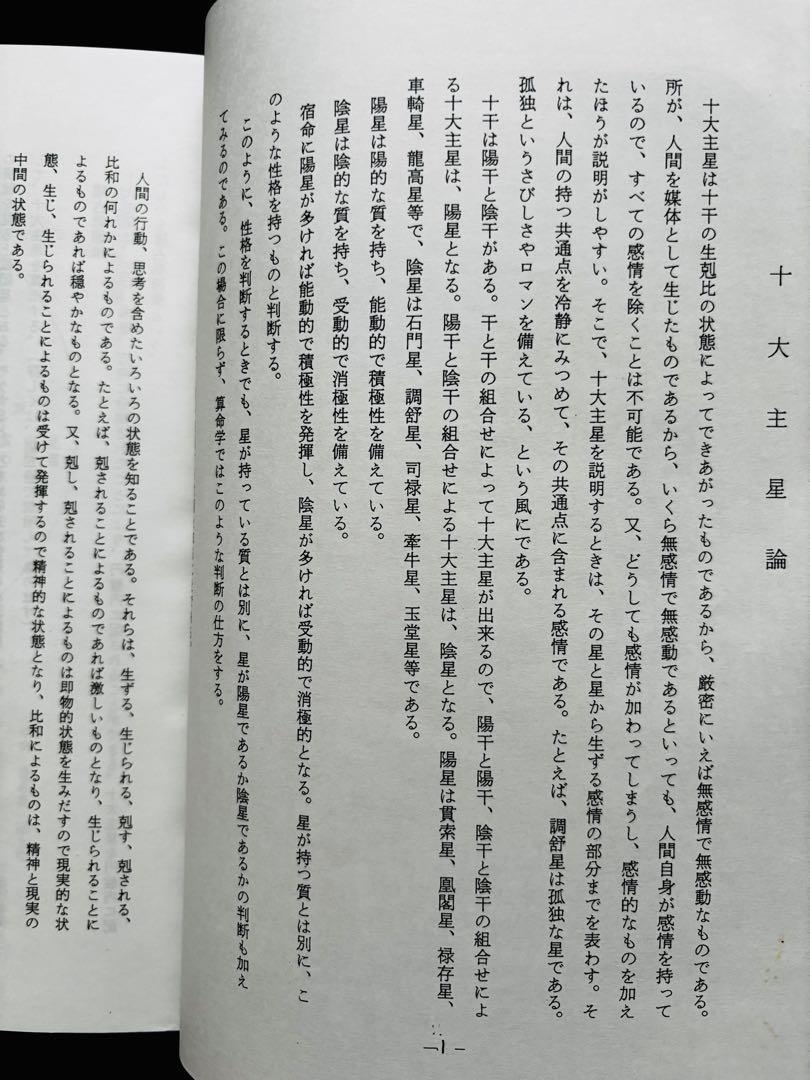 十大主星論
十大主星は十干の生剋比の状態によってできあがったものであるから、厳密にいえば無感情で無感動なものである。
所が、人間を媒体として生じたものであるから、いくら無感情で無感動であるといっても、人間自身が感情を持って
いるので、すべての感情を除くことは不可能である。又、どうしても感情が加わってしまうし、感情的なものを加え
たほうが説明がしやすい。そこで、十大主星を説明するときは、その星と星から生ずる感情の部分までを表わす。そ
れは、人間の持つ共通点を冷静にみつめて、その共通点に含まれる感情である。たとえば、調舒星は孤独な星である。
孤独というさびしさやロマンを備えている、という風にである。
十干は陽干と陰干がある。干と干の組合せによって十大主星が出来るので、陽干と陽干、陰干と陰干の組合せによ
る十大主星は、陽星となる。陽干と陰干の組合せによる十大主星は、陰星となる。陽星は貫索星、鳳閣星、禄存星、
車騎星、龍高星等で、陰星は石門星、調舒星、司禄星、牽牛星、玉堂星等である。
陽星は陽的な質を持ち、能動的で積極性を備えている。
陰星は陰的な質を持ち、受動的で消極性を備えている。
宿命に陽星が多ければ能動的で積極性を発揮し、陰星が多ければ受動的で消極的となる。星が持つ質とは別に、こ
のような性格を持つものと判断する。
このように、性格を判断するときでも、星が持っている質とは別に、星が陽星であるか陰星であるかの判断も加え
てみるのである。この場合に限らず、算命学ではこのような判断の仕方をする。
-1-
人間の行動、思考を含めたいろいろの状態を知ることである。それらは、生ずる、生じられる、剋す、剋される、
比和の何れかによるものである。たとえば、剋されることによるものであれば激しいものとなり、生じられることに
よるものであれば穏やかなものとなる。又、剋し、剋されることによるものは即物的状態を生みだすので現実的な状
態、生じ、生じられることによるものは受けて発揮するので精神的な状態となり、比和によるものは、精神と現実の
中間の状態である。